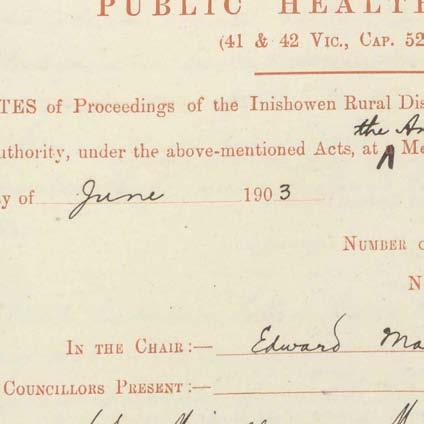 PUBLIC HEALTH
(41 & 42 VIC., CAP. 52
TES of Proceedings of the Inishowen Rural Dis
the An
uthority, under the above-mentioned Acts, at ^ Me
y of June 1903
NUMBER
N
IN THE CHAIR:— Edward Ma
COUNCILLORS PRESENT:—